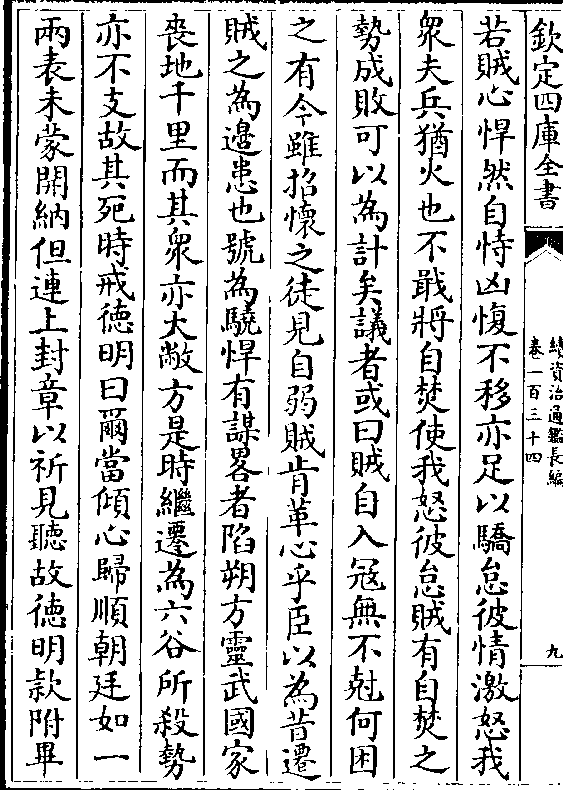 欽定四庫全書
續資治通鑑長編
卷一百三十四
九
若賊心悍然自恃凶愎不移亦足以驕怠彼情激怒我
衆夫兵猶火也不戢將自焚使我怒彼怠賊有自焚之
勢成敗可以為計矣議者或曰賊自入冦無不尅何困
之有今雖招懷之徒見自弱賊肯革心乎臣以為昔遷
賊之為邉患也號為驍悍有謀畧者陷朔方靈武國家
喪地千里而其衆亦大敝方是時繼遷為六谷所殺勢
亦不支故其死時戒德明曰爾當傾心歸順朝廷如一
兩表未蒙開納但連上封章以祈見聽故徳明款附畢